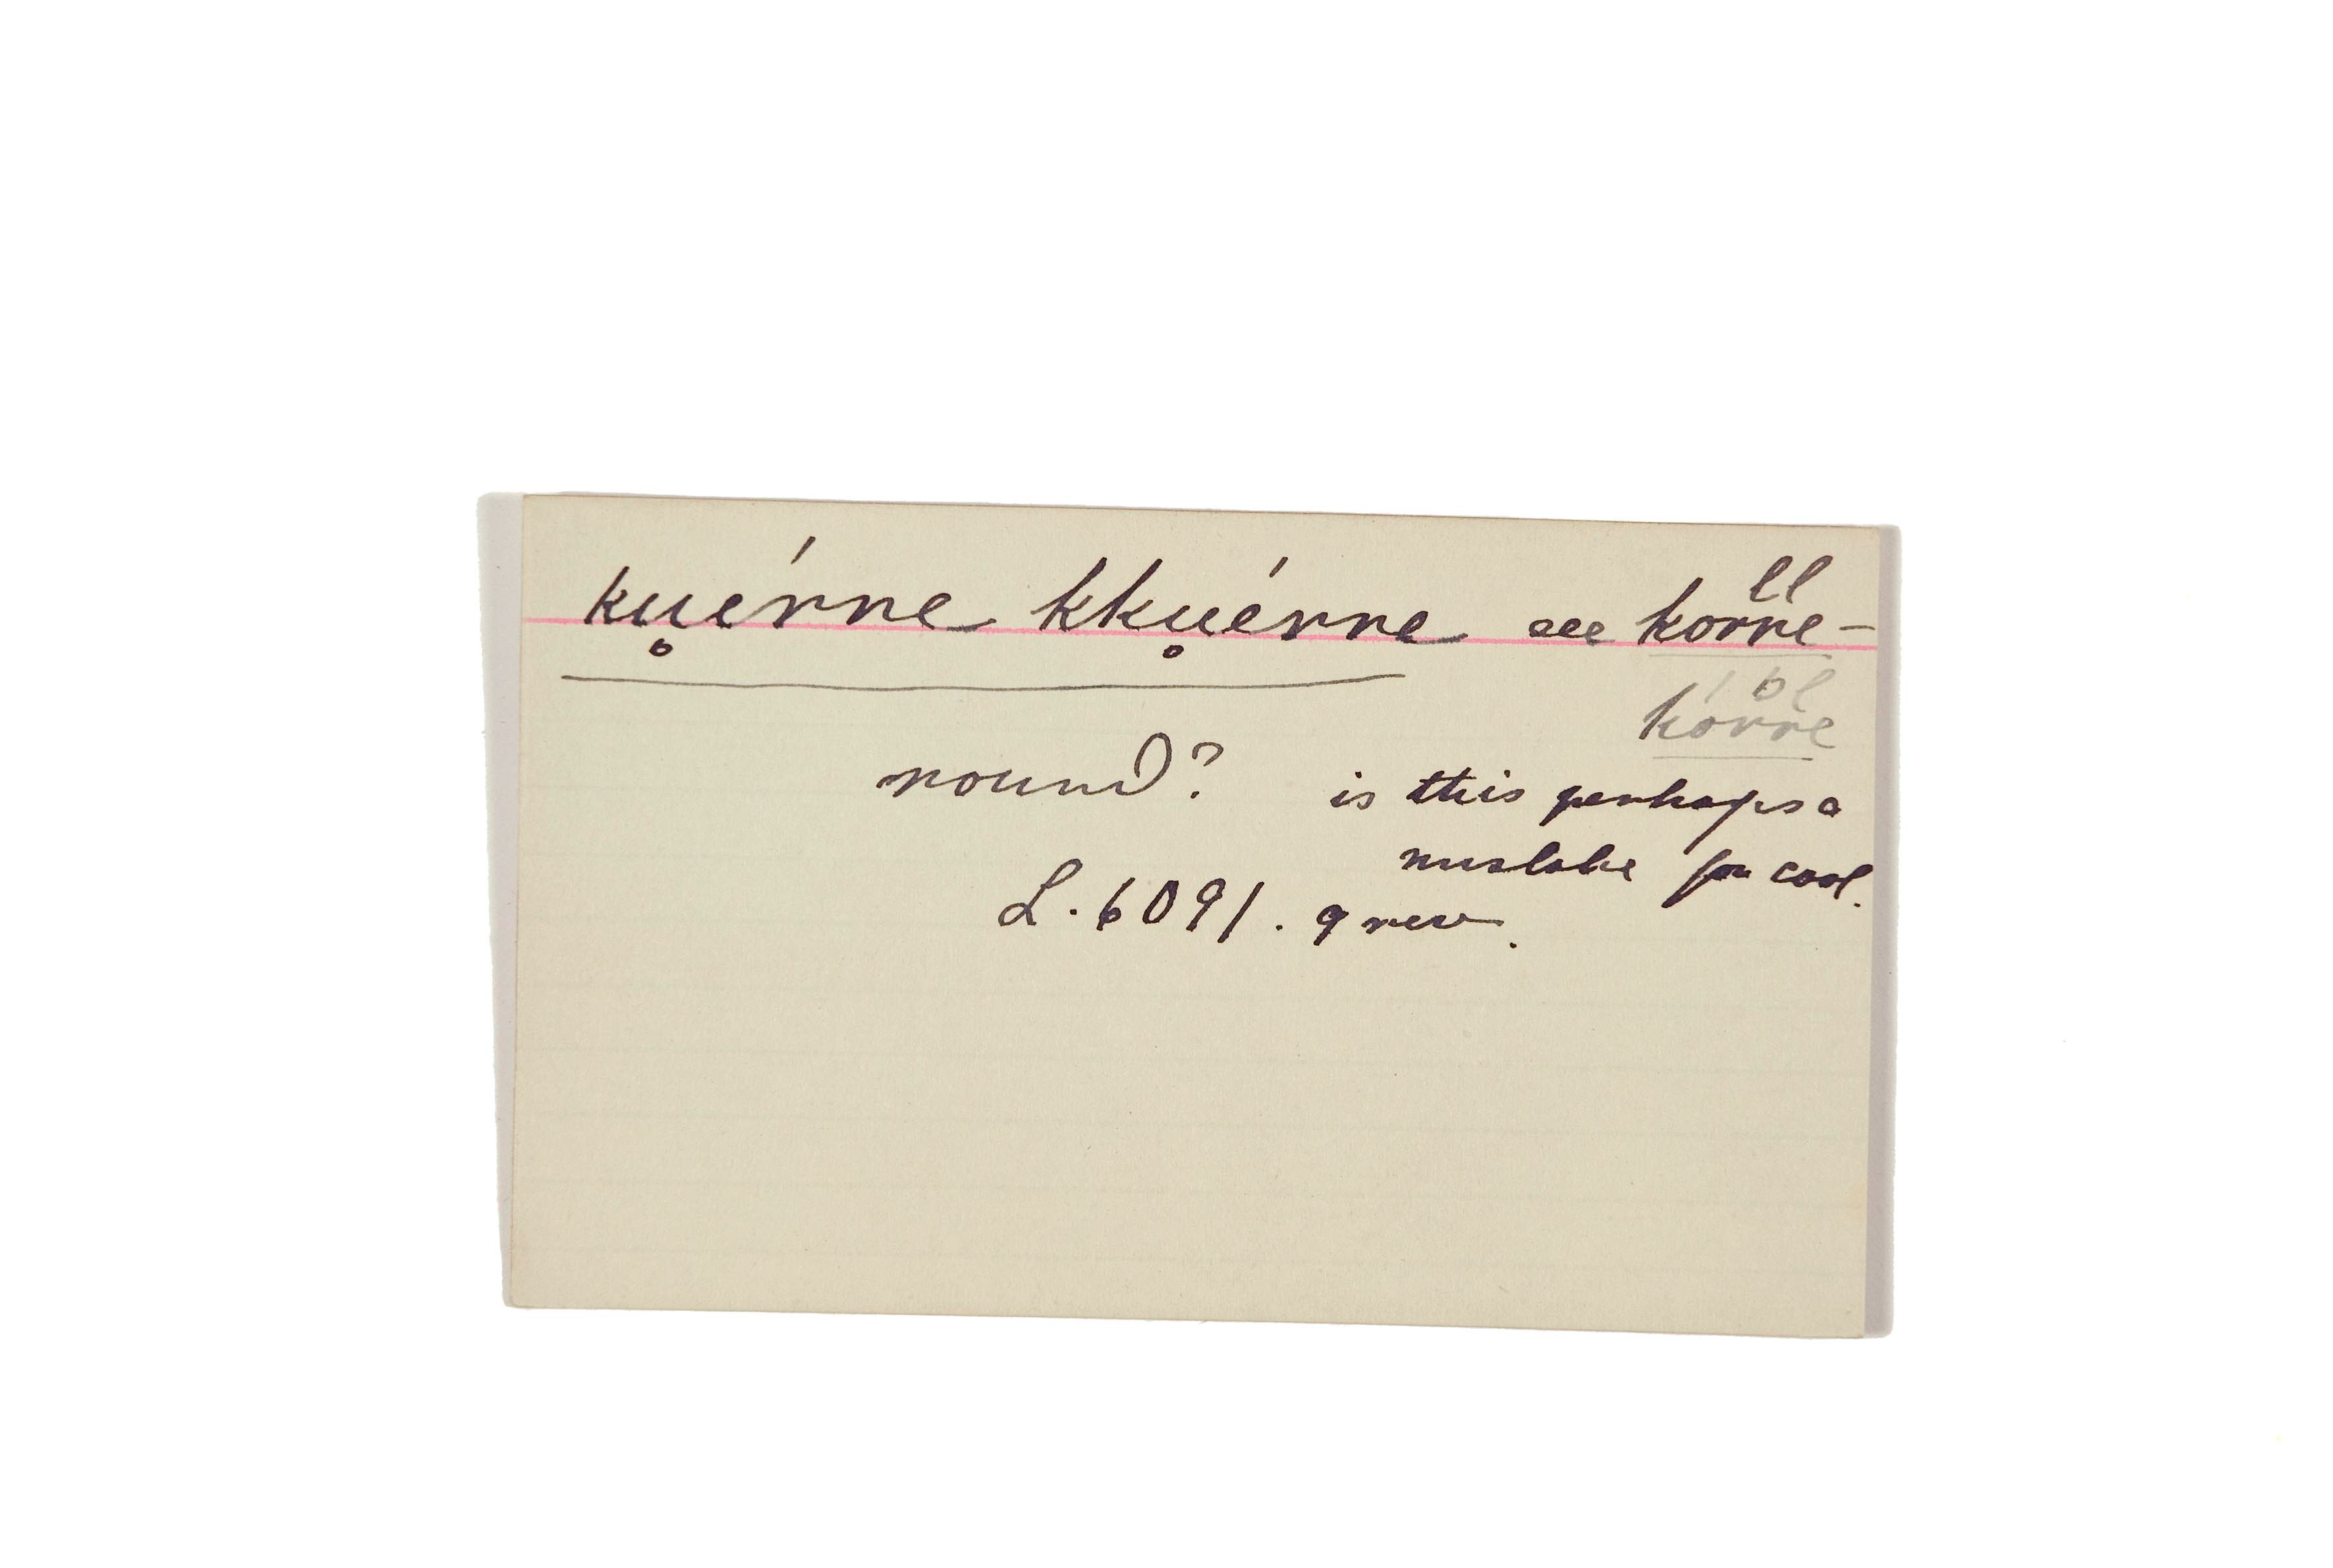 ku̥érre kku̥érre see korre–
ll
kórre
round? is this perhaps a
mistake for cool.
L. 6091. 9 rev.